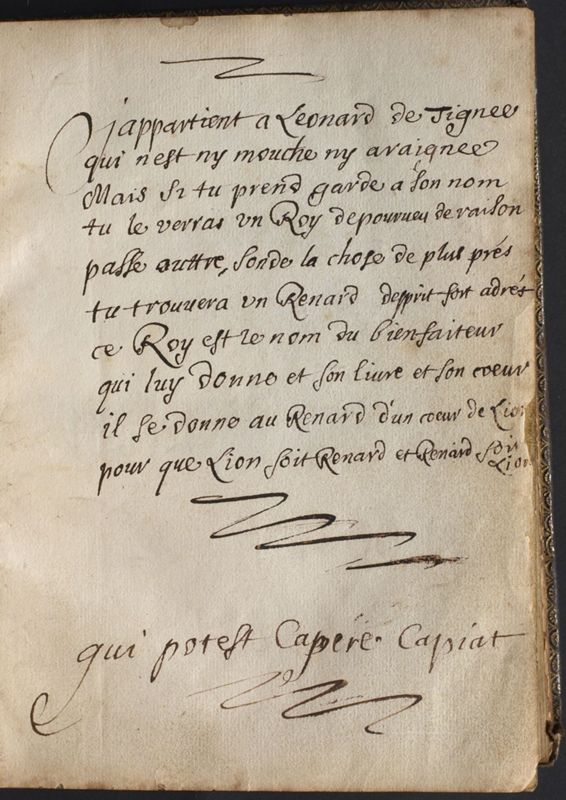 j'appartient a Leonard de Tignee
qui nest ny mouche ny araignee
Mais si tu prend garde a son nom
tu le verras un Roy depourueu de raison
passe outtre, sonde la chose de plus prés
tu trouuera un Renard desprit fort adrét
ce Roy est le nom du bienfaiteur
qui luy donne et son liure et son coeur
il se donne au Renard d'un coeur de Lion
pour que Lion soit Renard et Renard soit
Lion
qui potest Capere Capiat